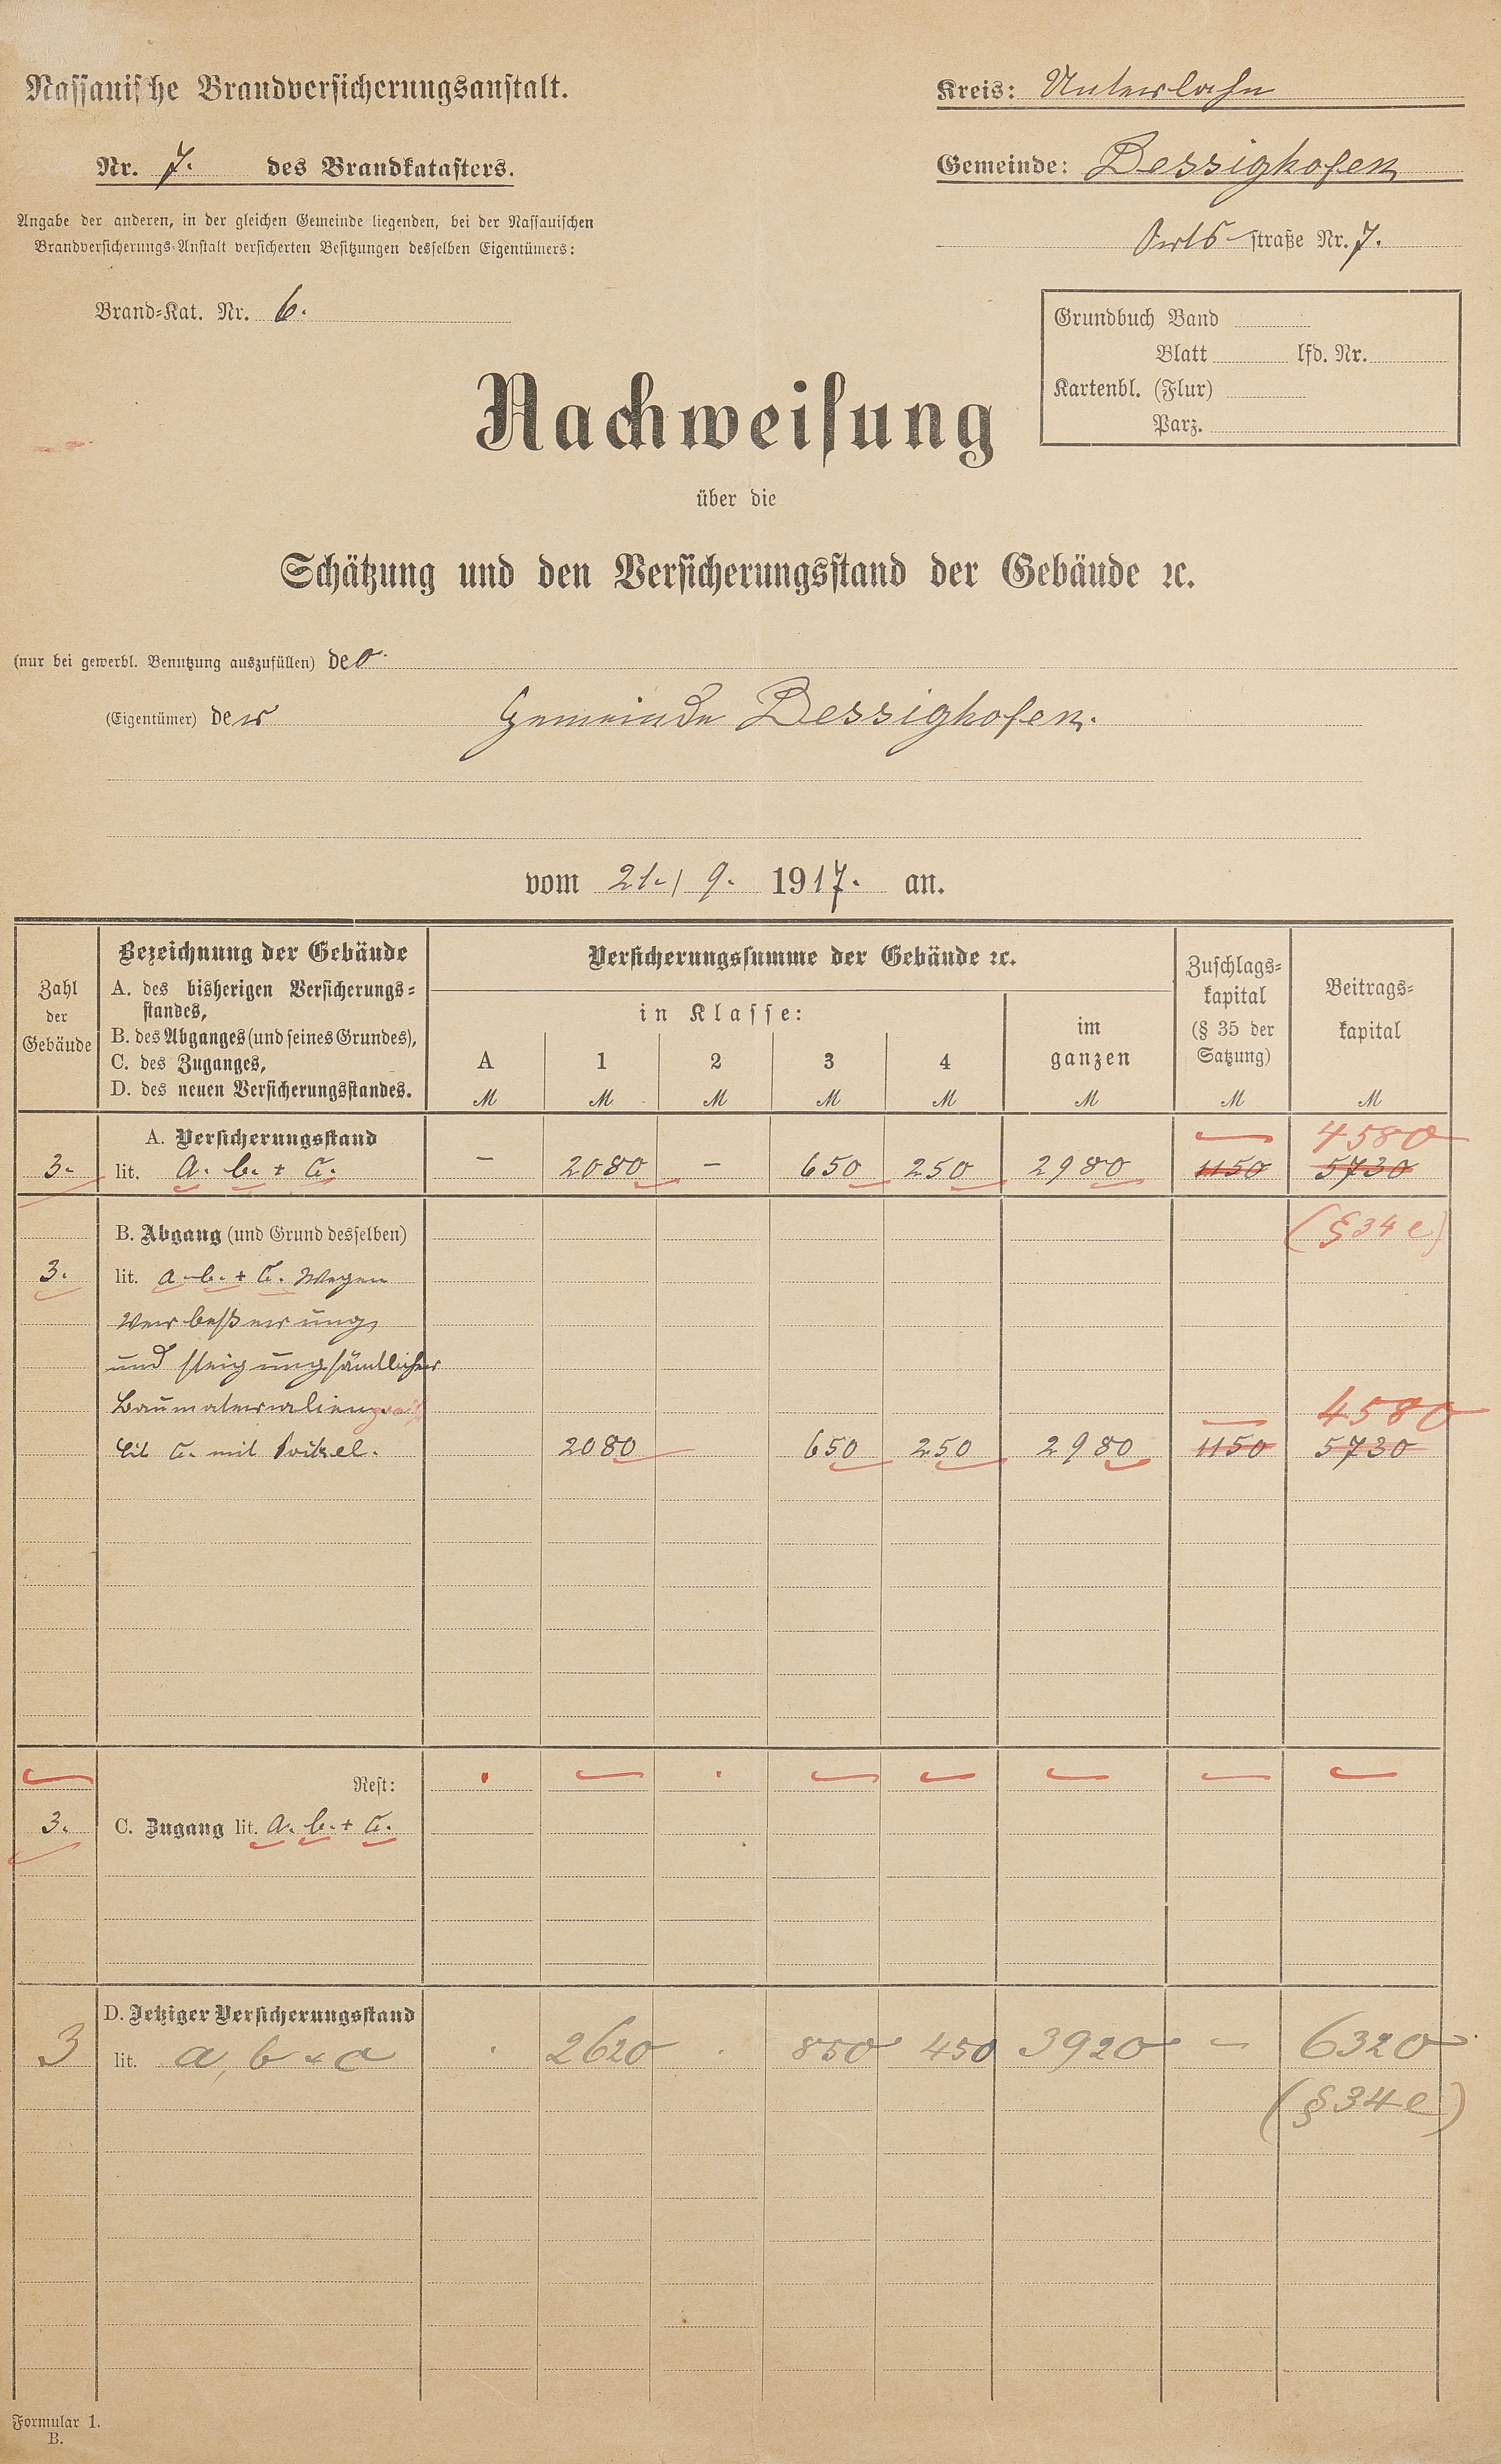 Nassauische Brandversicherungsanstalt.
Nr. 7. des Brandkatasters.
Angabe der anderen, in der gleichen Gemeinde liegenden, bei der Nassauischen
Brandversicherungs-Anstalt versicherten Besitzungen desselben Eigentümers:
Brand-Kat. Nr. 6.
Kreis: Unterlahn
Gemeinde: Dessighofen
Orts-straße Nr. 7.
Grundbuch Band
Blatt lfd. Nr.
Kartenbl. (Flur)
Parz.
Nachweisung
über die
Schätzung und den Versicherungsstand der Gebäude ꝛc.
(nur bei gewerbl. Benutzung auszufüllen) de
(Eigentümer) der Gemeinde Dessighofen.
vom 21./9. 1917. an.
Zahl der Gebäude
Bezeichnung der Gebäude
A. des bisherigen Versicherungs-
standes,
B. des Abganges (und seines Grundes),
C. des Zuganges,
D. des neuen Versicherungsstandes.
Versicherungssumme der Gebäude ꝛc.
in Klasse:
A 1 2 3 4
im ganzen
Zuschlags-
kapital
(§ 35 der
Satzung)
Beitrags-
kapital
M M M M M M M M
A. Versicherungsstand
4580
3. lit. a. b. + c. – 2080 – 650 250 2980 1150 5730
B. Abgang (und Grund desselben) (§ 34 e)
3. lit. a. b. + c. Wegen
Verbeßerung
und Steigung sämtlicher
Baumaterialien 4580
Lit c. mit 2080 650 250 2980 1150 5730
Rest:
3. C. Zugang lit. a. b. + c.
D. Jetziger Versicherungsstand
3 lit. a, b + c . 2620 . 850 450 3920 – 6320
(§ 34 e)
Formular 1.
B.